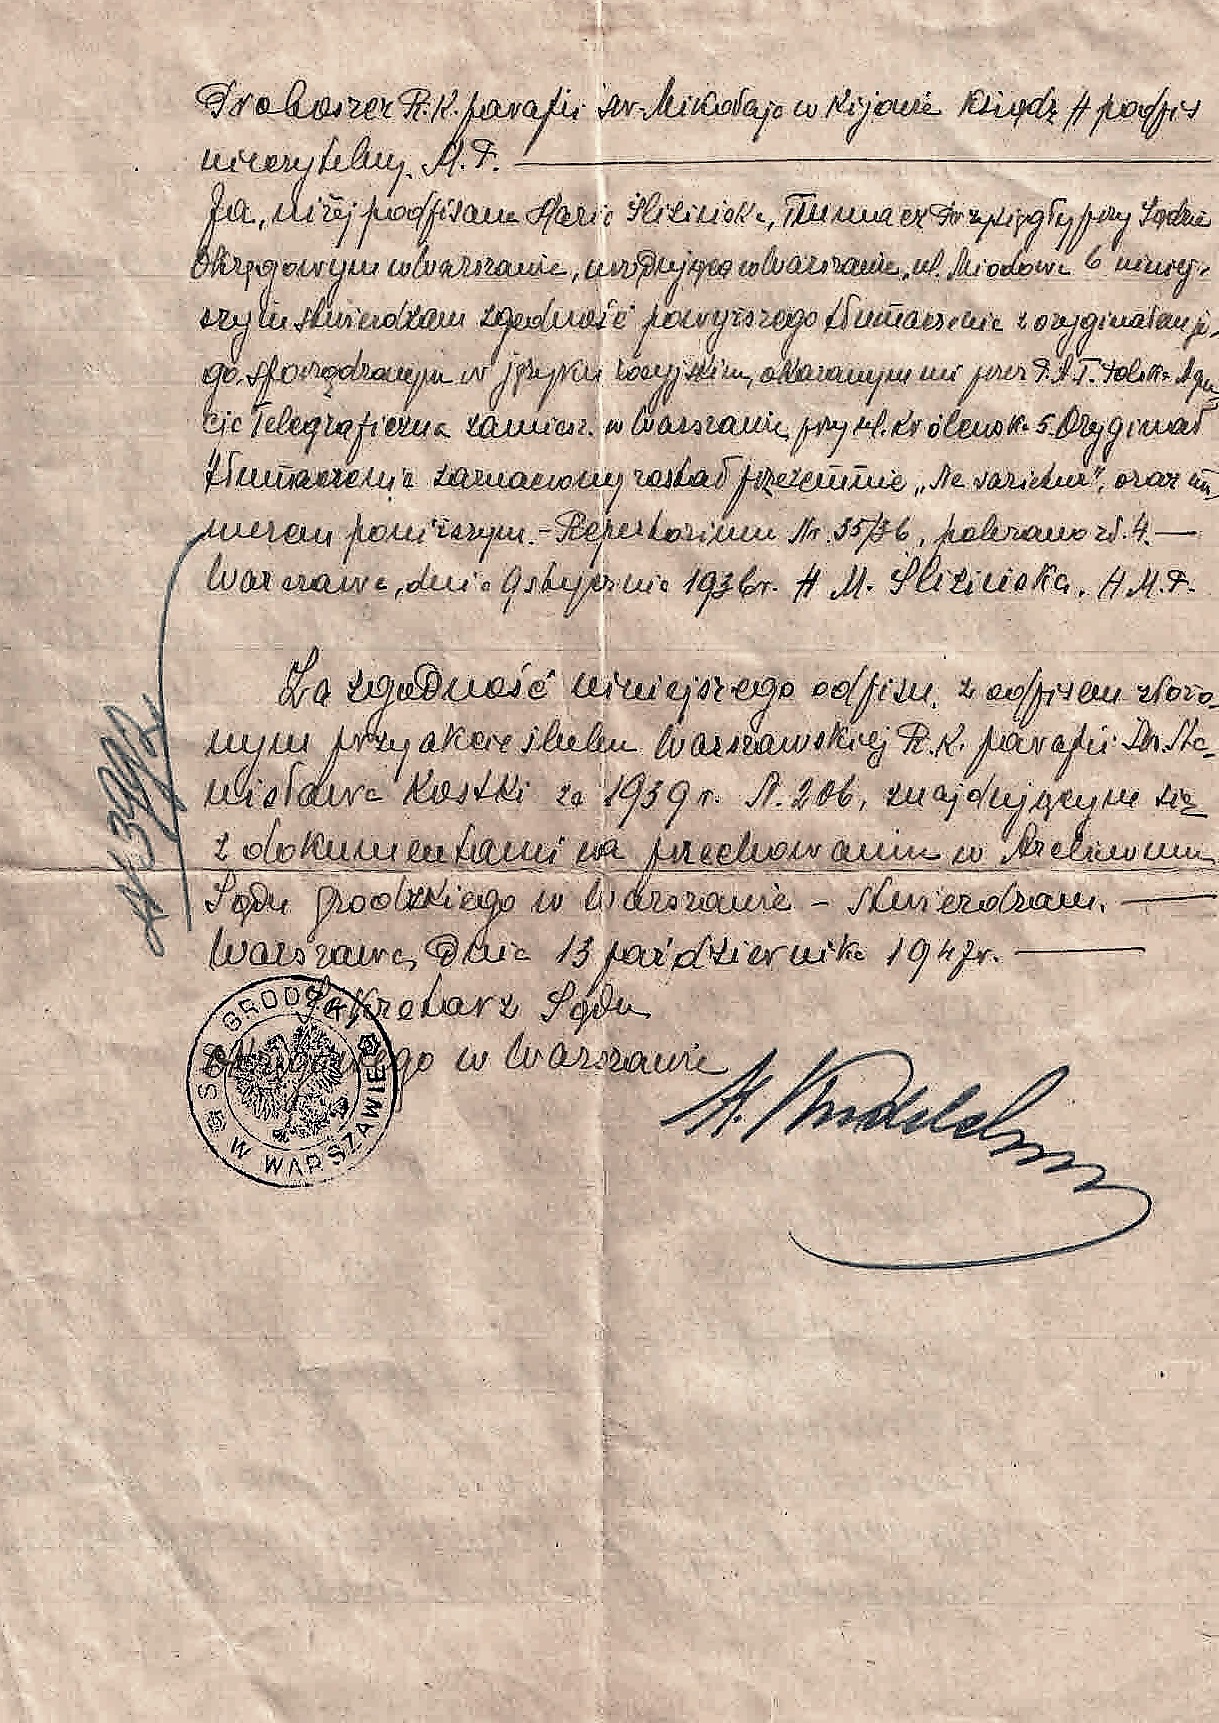 Proboszcz R.K. parafii św. Mikołaja w Kijowie Ksiądz /-/ podpis
nieczytelny. M.P.
Ja, niżej podpisana Maria Śliżińska, Tłumacz Przysięgły przy Sądzie
Okręgowym w Warszawie, urzędująca w Warszawie, ul. Miodowa 6 niniej-
szym stwierdzam zgodność powyższego tłumaczenia z oryginałem je-
go, sporządzonym w języku rosyjskim, okazanym mi przez P.A.T. Polska Agen-
cja Telegraficzna zamiesz. w Warszawie przy ul. Królewsk. 5. Oryginał
tłumaczenia zaznaczony został przezemnie „Ne varietur", oraz nu-
merem poniższym. - Repertorium Nr. 35/36, pobrano zł. 4. —
Warszawa, dnia 9 stycznia 1936 r. /-/ M. Śliżińska. /-/ M.P.
Za zgodność niniejszego odpisu, z odpisem złożo-
nym przy akcie ślubu Warszawskiej R.K. parafii Św. Sta-
nisława Kostki za 1939 r. N. 206, znajdującym się
z dokumentami na przechowaniu w Archiwum
Sądu Grodzkiego w Warszawie – stwierdzam. —
Warszawa, dnia 13 października 1947 r. —
Sekretarz Sądu
Okręgowego w Warszawie
SĄD GRODZKI W WARSZAWIE